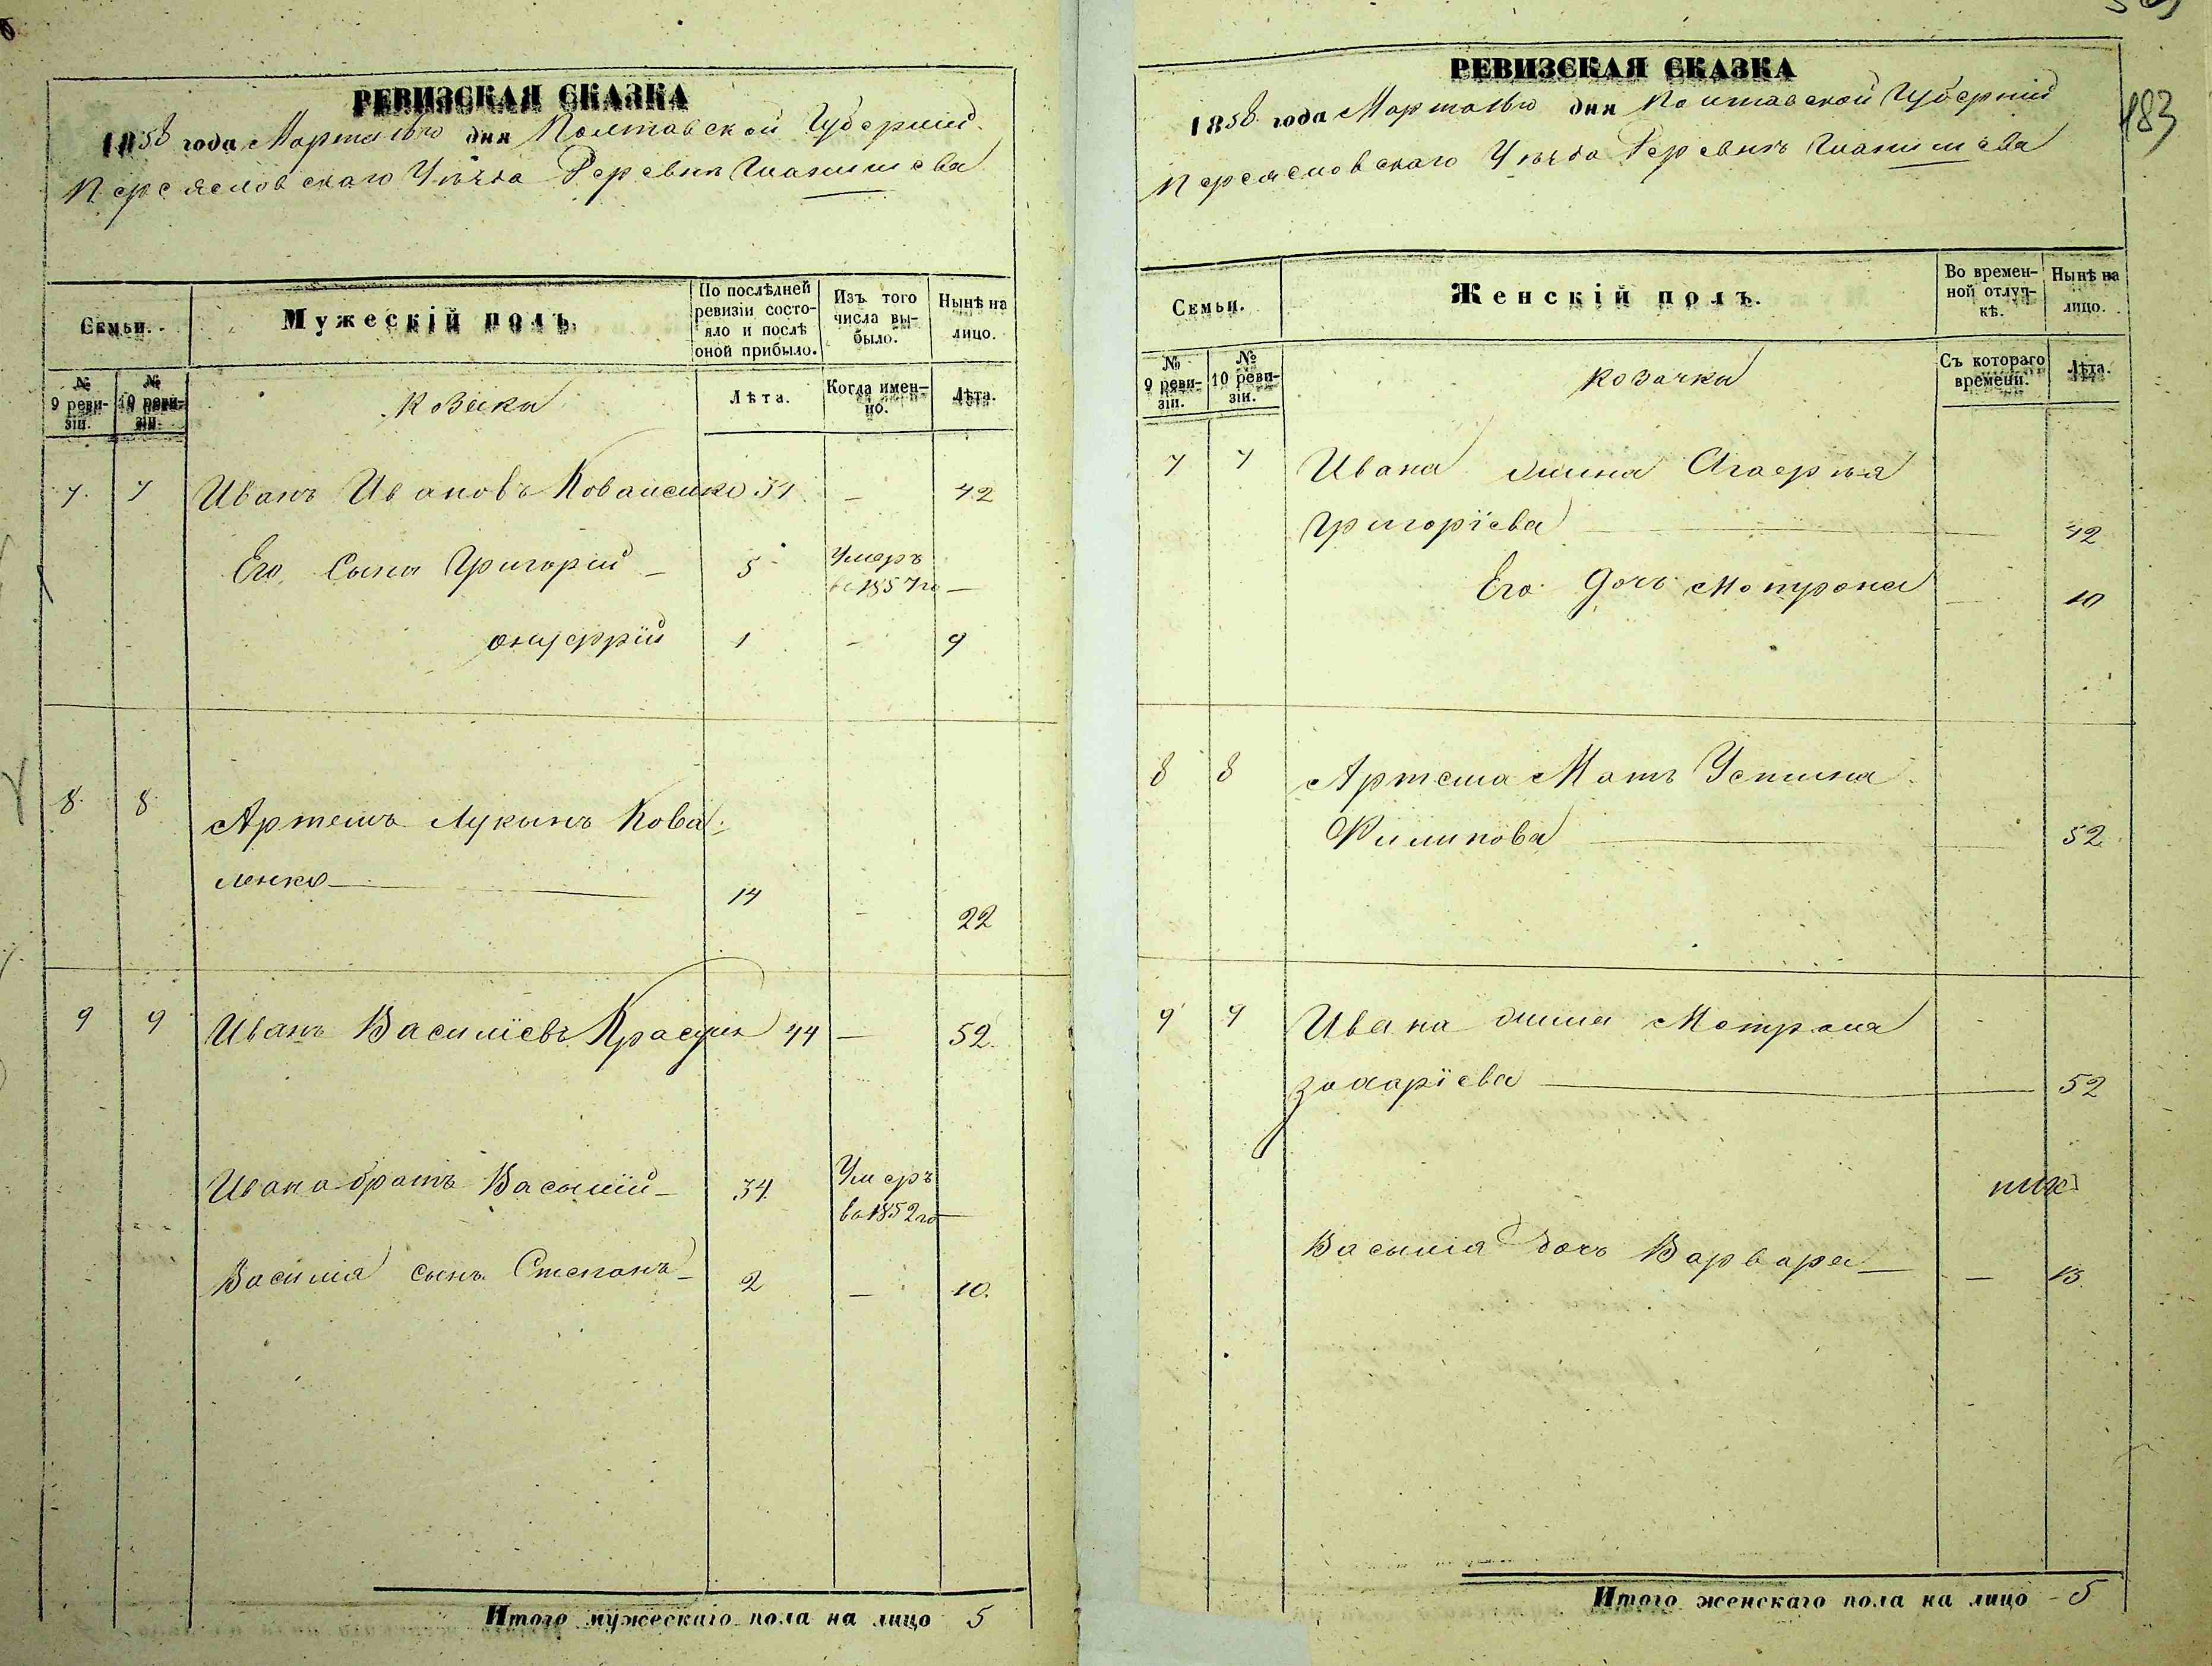 РЕВИЗСКАЯ СКАЗКА
1858 года Марта дня Полтавской Губернии
Переясловскаго Уѣзда Деревни
Семьи.
Мужескій полъ.
По послѣдней ревизіи состо-
яло и послѣ оной прибыло.
Изъ того числа вы-
было.
Нынѣ на лицо.
№ 9 реви-
зіи.
№ 10 реви-
зіи.
Козаки
Лѣта.
Когда имен-
но.
Лѣта.
7. 7 Иванъ Ивановъ Коваленко — 42
Его Сынъ Григорій — 5 Умеръ
в 1857го —
Онуфрій 1 — 9
8. 8. Артемъ Лукинъ Кова-
ленко — 14 — 22
9 9 Иванъ Василіевъ 44 — 52.
Ивана братъ Василій — 34 Умеръ
во 1852го —
Василія сынъ Степанъ — 2 — 10.
Итого мужескаго пола на лицо 5
483
РЕВИЗСКАЯ СКАЗКА
1858 года Марта дня Полтавской Губерніи
Переясловскаго Уѣзда Деревнѣ
Семьи.
Женскій полъ.
Во времен-
ной отлуч-
кѣ.
Нынѣ на лицо.
№ 9 реви-
зіи.
№ 10 реви-
зіи.
Козачки
Съ котораго времени.
Лѣта.
7 7 Ивана жина
Григоріева — 42
Его дочь Мотрона — 10
8 8 Артема Мать Устина
Филипова — 52
9 9 Ивана жина Мотрона
Захаріева — 52
Василія дочь Варвара — — 13.
Итого женскаго пола на лицо - 5